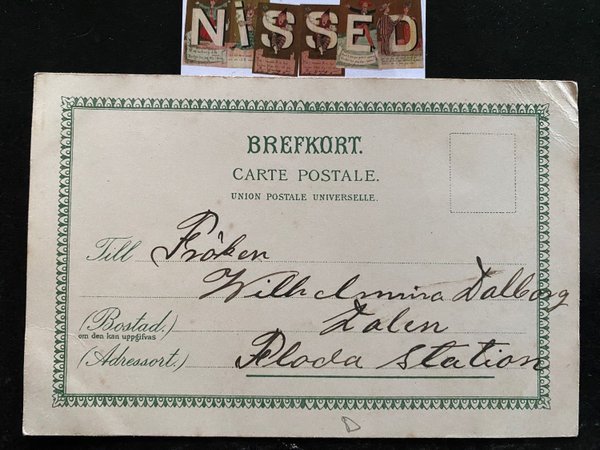 NISSED
BREFKORT.
CARTE POSTALE.
UNION POSTALE UNIVERSELLE.
Till Fröken
Wilhelmina Dalborg
(Bostad.) Dalen
om den kan uppgifvas
(Adressort.) Floda Station